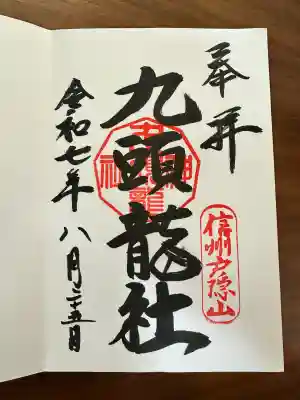 奉拝
信州戸隠山
九頭龍社
令和七年八月二十五日